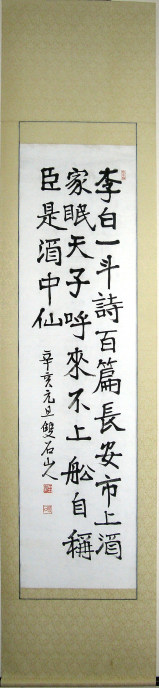 李白一斗詩百篇長安市上酒
家眠天子呼來不上船自稱
臣是酒中仙
辛亥元旦雙石山人